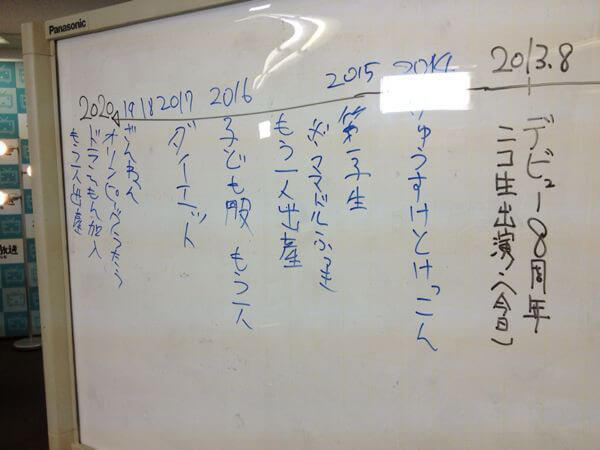 Panasonic
2013.8
デビュー8周年
ニコ生出演（今日）
2014
りゅうすけとけっこん
2015
第一子生
ママドルふっき
もう一人出産
2016
子ども服 もう一人
2017
ダイエット
18
19
2020
オリンピックで
ドラえもん加入
もう一人出産